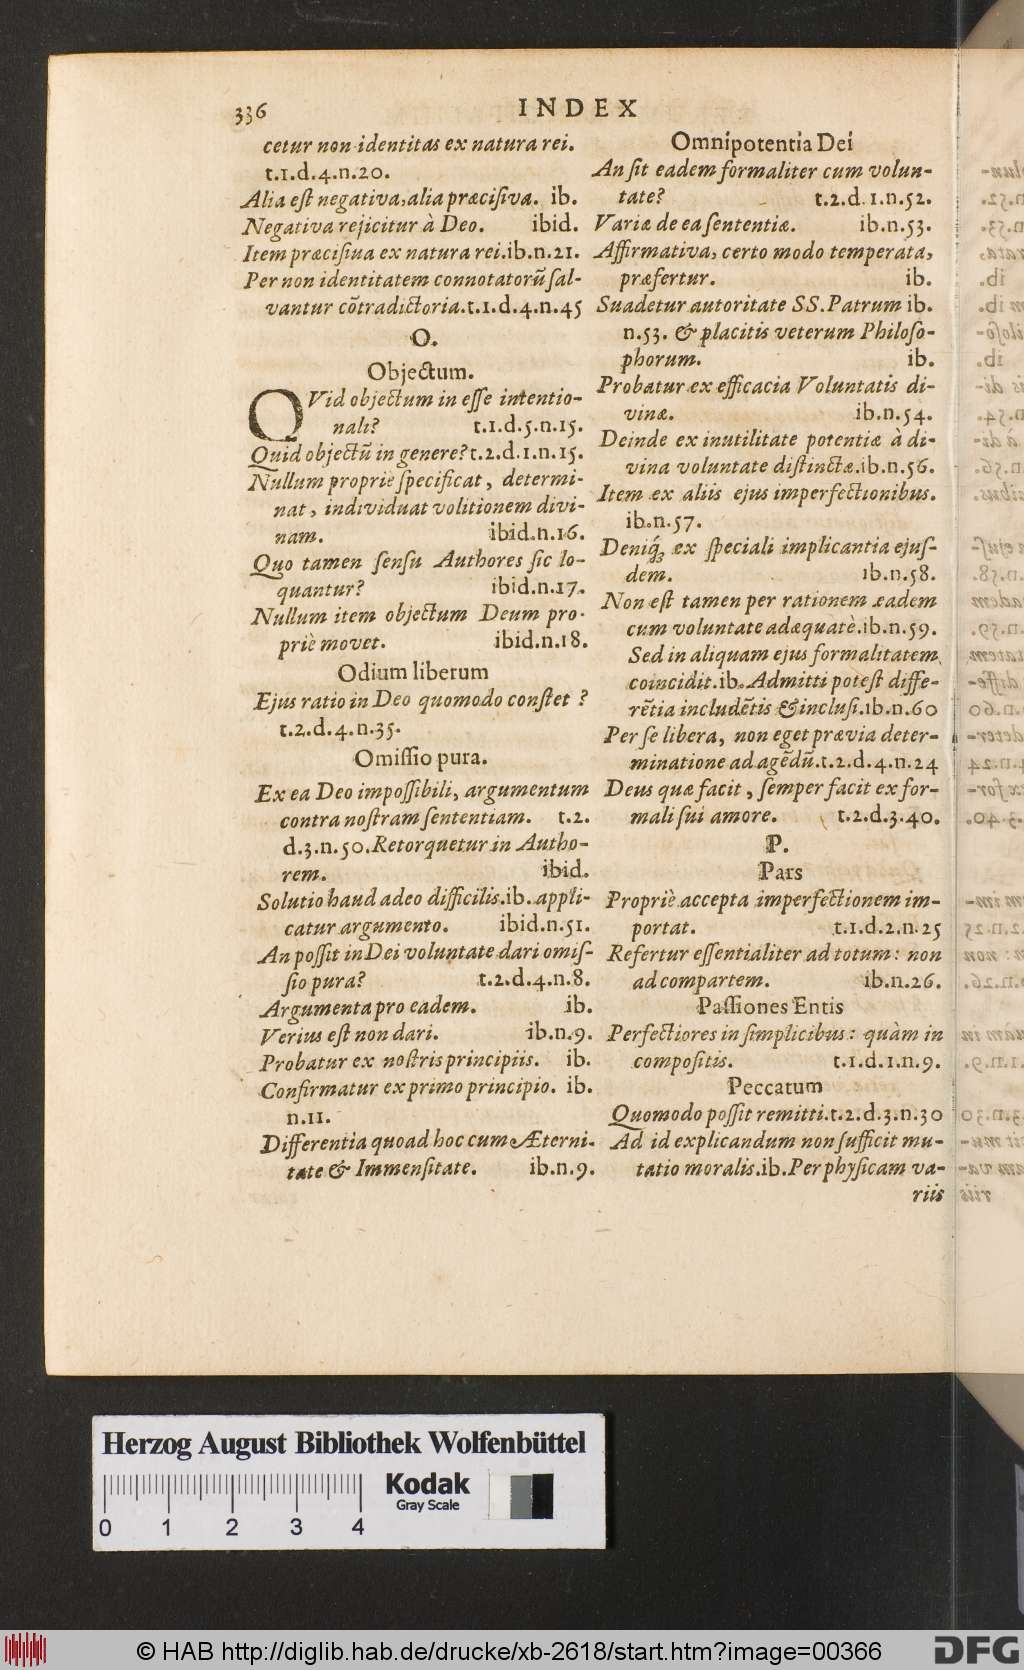 336
INDEX
cetur non identitas ex natura rei.
t.1.d.4.n.20.
Alia eſt negativa, alia præciſiva. ib.
Negativa rejicitur à Deo. ibid.
Item præciſiua ex natura rei.ib.n.21.
Per non identitatem connotatorũ ſal-
vantur cõtradictoria.t.1.d.4.n.45
O.
Objectum.
QVid objectum in eſſe intentio-
nali? t.1.d.5.n.15.
Quid objectũ in genere?t.2.d.1.n.15.
Nullum propriè ſpecificat, determi-
nat, individuat volitionem divi-
nam. ibid.n.16.
Quo tamen ſenſu Authores ſic lo-
quantur? ibid.n.17.
Nullum item objectum Deum pro-
priè movet. ibid.n.18.
Odium liberum
Ejus ratio in Deo quomodo conſtet ?
t.2.d.4.n.35.
Omiſſio pura.
Ex ea Deo impoſſibili, argumentum
contra noſtram ſententiam. t.2.
d.3.n.50.Retorquetur in Autho-
rem. ibid.
Solutio haud adeo difficilis.ib. appli-
catur argumento. ibid.n.51.
An poſſit in Dei voluntate dari omiſ-
ſio pura? t.2.d.4.n.8.
Argumenta pro eadem. ib.
Verius eſt non dari. ib.n.9.
Probatur ex noſtris principiis. ib.
Confirmatur ex primo principio. ib.
n.11.
Differentia quoad hoc cum Æterni-
tate & Immenſitate. ib.n.9.
Omnipotentia Dei
An ſit eadem formaliter cum volun-
tate? t.2.d.1.n.52.
Variæ de ea ſententiæ. ib.n.53.
Affirmativa, certo modo temperata,
præfertur. ib.
Suadetur autoritate SS.Patrum ib.
n.53. & placitis veterum Philoſo-
phorum. ib.
Probatur ex efficacia Voluntatis di-
vinæ. ib.n.54.
Deinde ex inutilitate potentiæ à di-
vina voluntate diſtinctæ.ib.n.56.
Item ex aliis ejus imperfectionibus.
ib.n.57.
Deniq́ꝫ ex ſpeciali implicantia ejuſ-
dem. ib.n.58.
Non eſt tamen per rationem eadem
cum voluntate adæquatè.ib.n.59.
Sed in aliquam ejus formalitatem
coincidit.ib. Admitti poteſt diffe-
rẽtia includẽtis & incluſi.ib.n.60
Per ſe libera, non eget prævia deter-
minatione ad agẽdũ.t.2.d.4.n.24
Deus quæ facit, ſemper facit ex for-
mali ſui amore. t.2.d.3.40.
P.
Pars
Propriè accepta imperfectionem im-
portat. t.1.d.2.n.25
Refertur eſſentialiter ad totum: non
ad compartem. ib.n.26.
Paſſiones Entis
Perfectiores in ſimplicibus: quàm in
compoſitis. t.1.d.1.n.9.
Peccatum
Quomodo poſſit remitti.t.2.d.3.n.30
Ad id explicandum non ſufficit mu-
tatio moralis.ib.Per phyſicam va-
riis
Herzog August Bibliothek Wolfenbüttel
Kodak
Gray Scale
0 1 2 3 4
© HAB http://diglib.hab.de/drucke/xb-2618/start.htm?image=00366
DFG